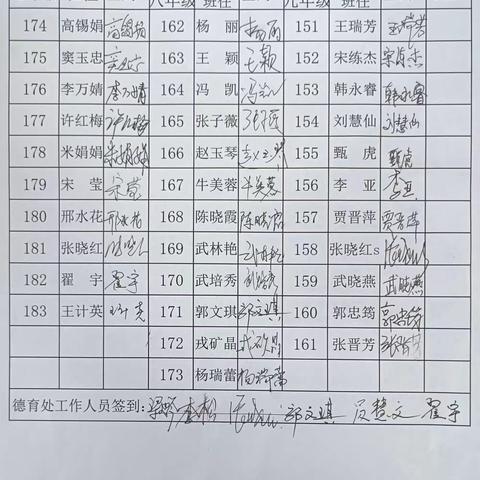 八年级 班任 九年级 班任
174 高锡娟 高锡娟 162 杨丽 杨丽 151 王瑞芳 王瑞芳
175 窦玉忠 162 王颖 王颖 152 宋练杰 宋练杰
176 李万婧 李万婧 164 冯凯 冯凯 153 韩永睿 韩永睿
177 许红梅 许红梅 165 张子薇 张子薇 154 刘慧仙 刘慧仙
178 米娟娟 米娟娟 166 赵玉琴 赵玉琴 155 甄虎 甄虎
179 宋莹 宋莹 167 牛美蓉 牛美蓉 156 李亚 李亚
180 邢水花 邢水花 168 陈晓霞 陈晓霞 157 贾晋萍 贾晋萍
181 张晓红 169 武林艳 158 张晓红s
182 翟宇 翟宇 170 武培秀 159 武晓燕 武晓燕
183 王计英 171 郭文琪 郭文琪 160 郭忠筠 郭忠筠
172 戎矿晶 戎矿晶 161 张晋芳 张晋芳
173 杨瑞蕾 杨瑞蕾
德育处工作人员签到: 李松 郭文琪 员慧文 翟宇